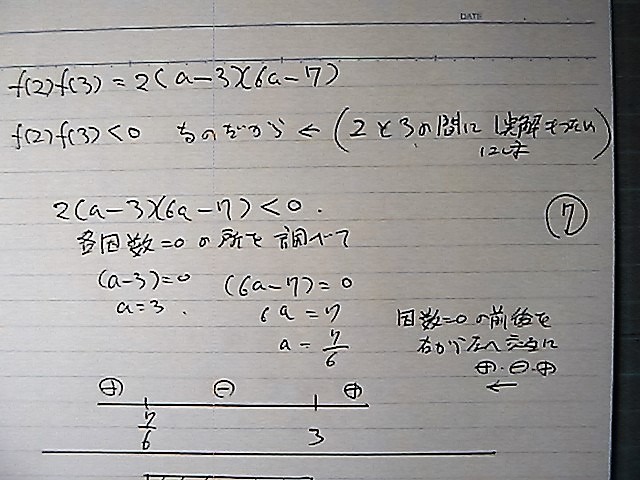 DATE
f(2)f(3) = 2(a-3)(6a-7)
f(2)f(3)<0 なのだから ← (2と3の間に1実解もつため
には)
2(a-3)(6a-7)<0.
⑦
各因数=0の所を調べて
(a-3)=0 (6a-7)=0
a=3. 6a=7
a=7/6
因数=0の前後を
右から左へ交互に
⊕・⊖・⊕
←
⊕ ⊖ ⊕
7/6 3